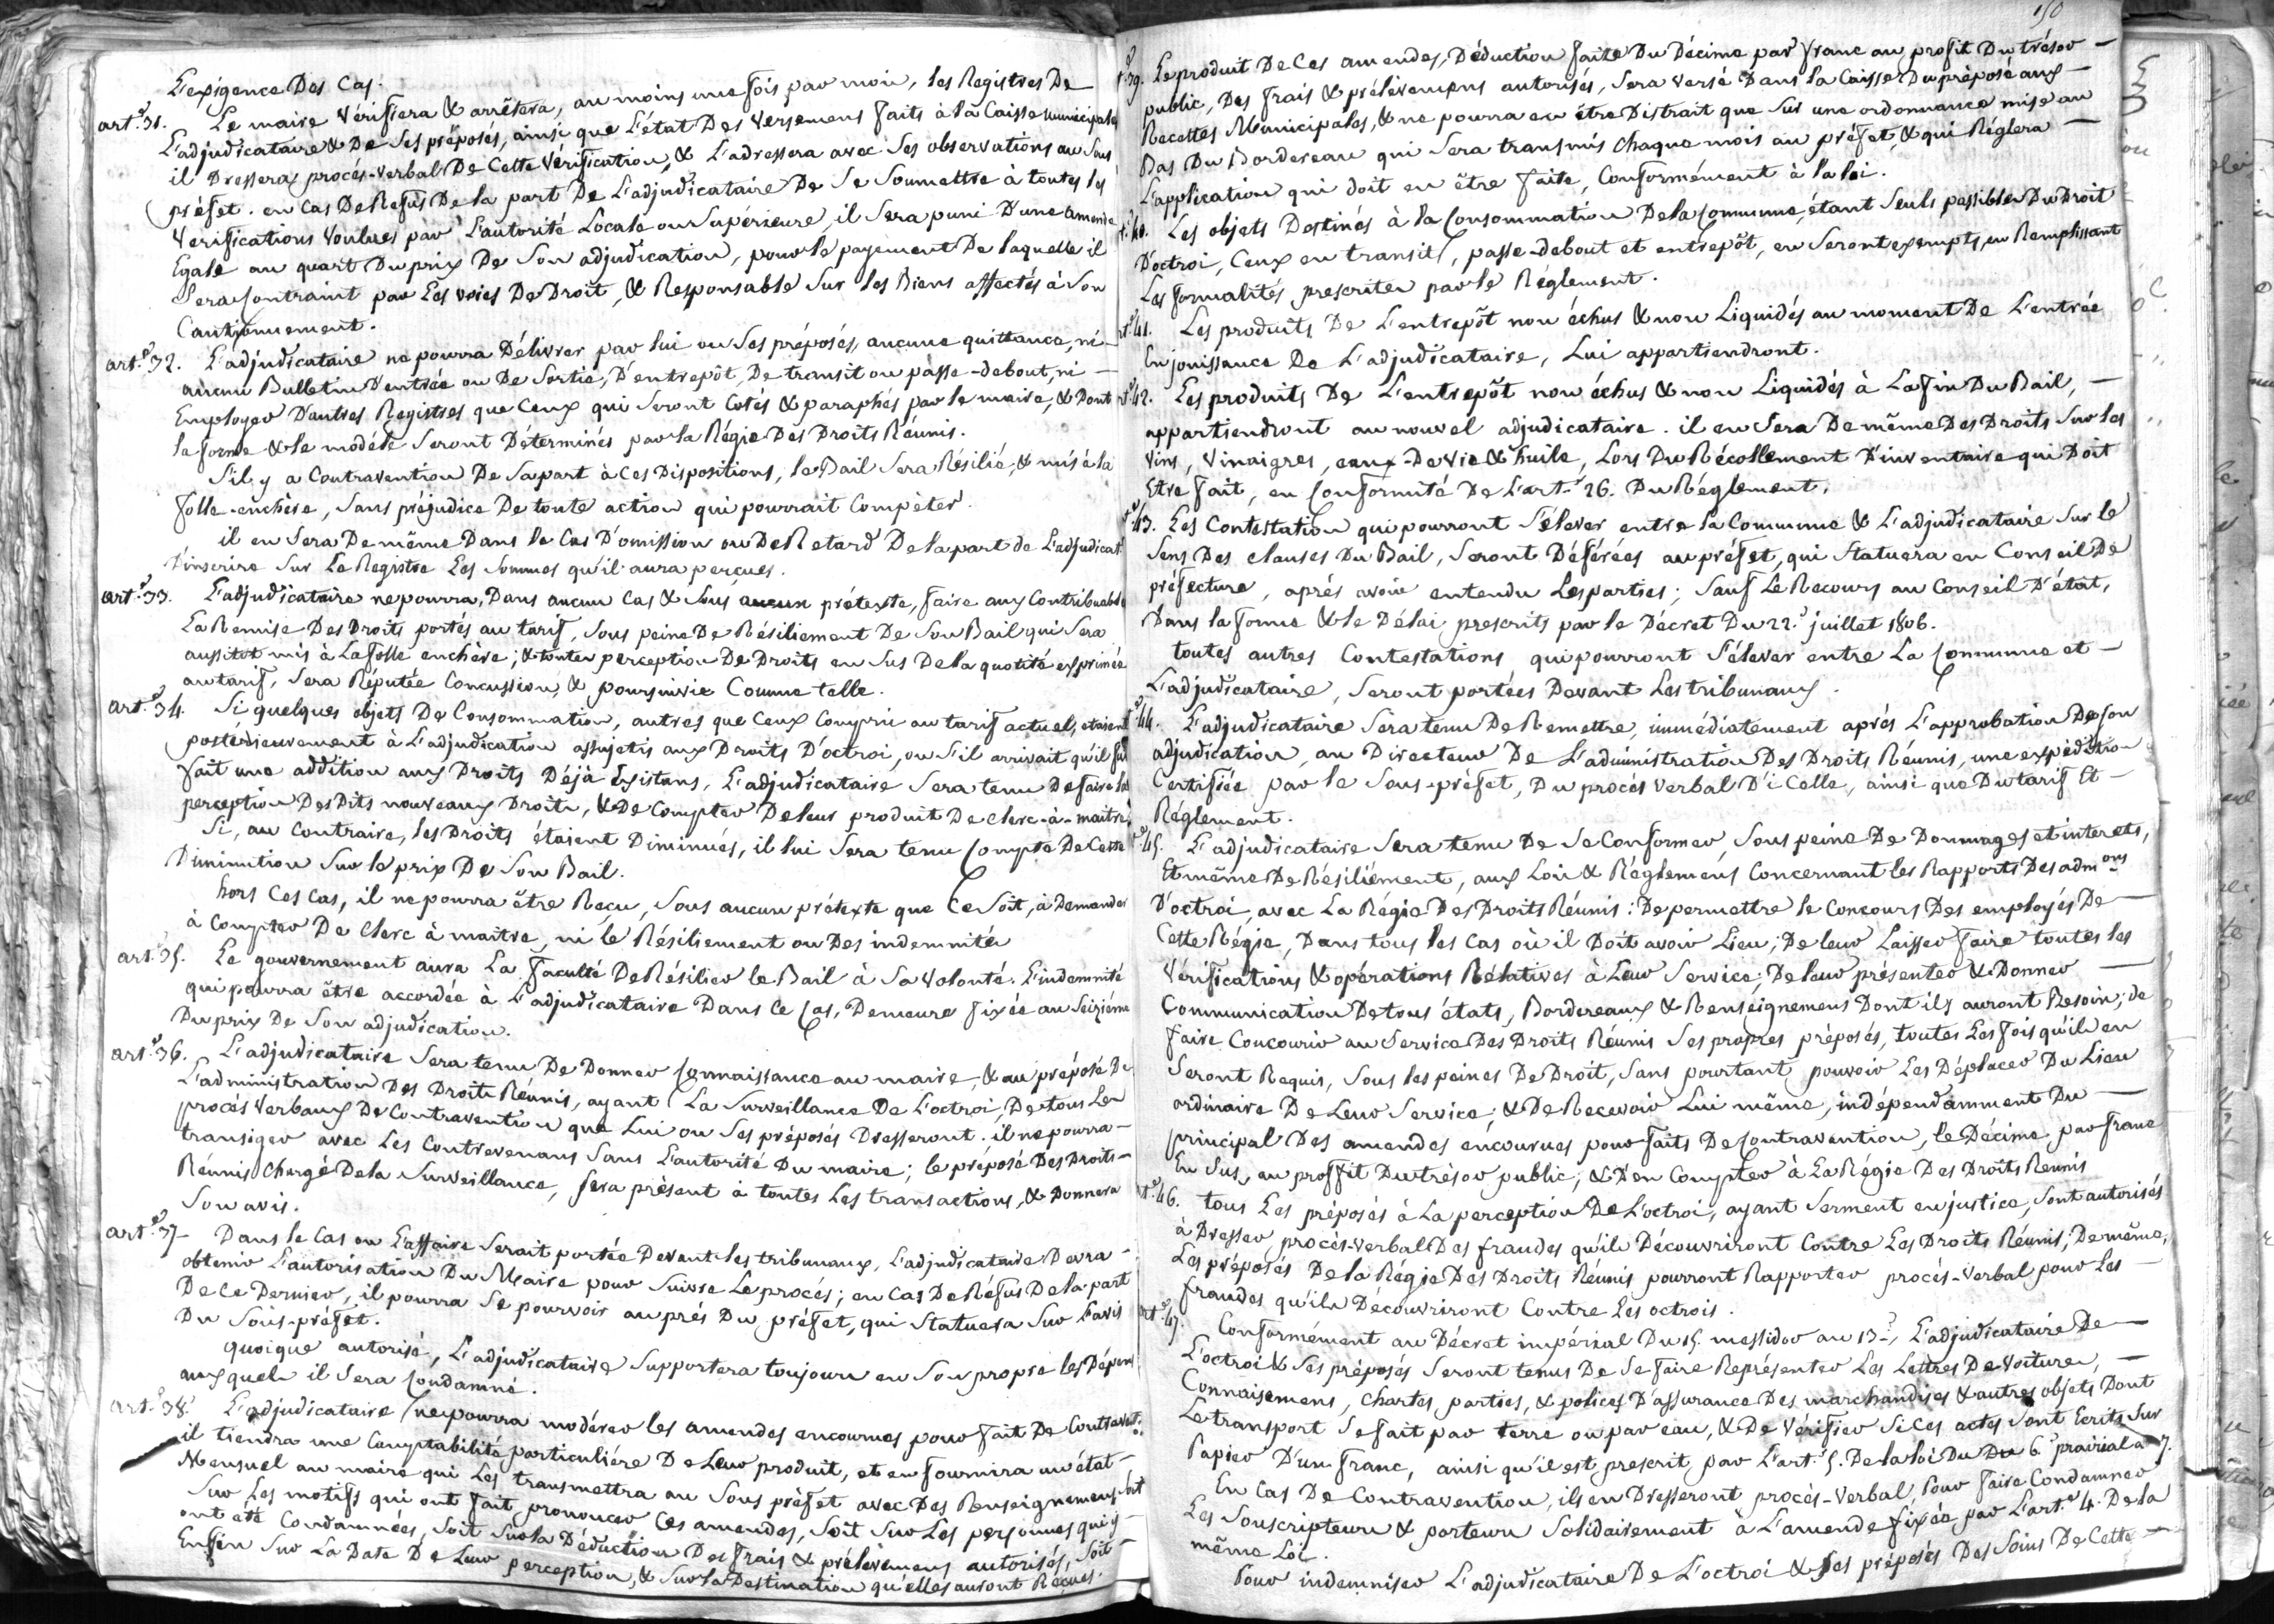 L'exigence Des Cas.
art.e 31. Le maire Vérifiera & arrêtera, au moins une fois par mois, les Registres De
L'adjudicataire & De Ses préposés, ainsi que L'état Des Versemens faits à la Caisse municipale
il Dressera procés-Verbal De Cette Vérification, & L'adressera avec Ses observations au Sous
préfet. en Cas De Refus De la part De L'adjudicataire De Se Soumettre à toutes les
Vérifications Voulues par L'autorité Locale ou Supérieure, il Sera puni D'une amende
Egale au quart Du prix De Son adjudication, pour le payement De laquelle il
Sera Contraint par Les voies De Droit, & Responsable Sur les Biens affectés à Son
Cautionnement.
art.e 32. L'adjudicataire ne pourra Délivrer par lui ou Ses préposés, aucune quittance, ni
aucun Bulletin D'entrée ou De Sortie, D'entrepôt, De transit ou passe-debout, ni —
Employer D'autres Registres que Ceux qui Seront Cotés & paraphés par le maire, & Dont
la forme & le modéle Seront Déterminés par la Régie Des Droits Réunis.
S'il y a Contravention De Sa part à Ces Dispositions, le Bail Sera Résilié, & mis à la
folle-enchère, Sans préjudice De toute action qui pourrait Compéter.
il en Sera De même Dans le Cas D'omission ou De Retard De la part de L'adjudicat.
D'inscrire Sur Le Registre Les Sommes qu'il aura perçues.
art.e 33. L'adjudicataire ne pourra, Dans aucun Cas & Sous aucun prétexte, faire aux Contribuables
La Remise Des Droits portés au tarif, Sous peine De Résiliement De Son Bail qui Sera
aussitot mis à La folle enchère; & toute perception De Droits en Sus De la quotité exprimée
au tarif, Sera Réputée Concussion, & poursuivie Comme telle.
art.e 34. Si quelques objets De Consommation, autres que Ceux Compris au tarif actuel, etaient
postérieurement à L'adjudication assujetis aux Droits D'octroi, ou S'il arrivait qu'il fut
fait une addition aux Droits Déjà Existans, L'adjudicataire Sera tenu De faire la
perception Des Dits nouveaux Droits, & De Compter De leur produit De clerc-à-maitre.
Si, au Contraire, les Droits étaient Diminués, il lui Sera tenu Compte De Cette
Diminution Sur le prix De Son Bail.
hors Ces Cas, il ne pourra être Reçu, Sous aucun prétexte que Ce Soit, à Demander
à Compter De Clerc à maitre, ni le Résiliement ou Des indemnités
art.e 35. Le gouvernement aura La faculté De Résilier le Bail à Sa Volonté. L'indemnité
qui pourra être accordée à L'adjudicataire Dans Ce Cas, Demeure fixée au Seiziéme
Du prix De Son adjudication.
art.e 36. L'adjudicataire Sera tenu De Donner Connaissance au maire, & au préposé De
L'administration Des Droits Réunis, ayant La Surveillance De L'octroi, De tous Les
procés Verbaux De Contravention que Lui ou Ses préposés Dresseront. il ne pourra —
transiger avec Les Contrevenans Sans L'autorité Du maire; le préposé Des Droits —
Réunis Chargé De la Surveillance, Sera présent à toutes Les transactions, & Donnera
Son avis.
art.e 37 Dans le Cas ou L'affaire Serait portée Devant les tribunaux, L'adjudicataire Devra —
obtenir L'autorisation Du Maire pour Suivre Le procés; en Cas De Réfus De la part
De Ce Dernier, il pourra Se pourvoir auprés Du préfet, qui Statuera Sur L'avis
Du Sous-préfet.
quoique autorisé, L'adjudicataire Supportera toujours en Son propre les Dépens
auxquels il Sera Condamné.
art.e 38. L'adjudicataire ne pourra modérer les amendes encourues pour fait De Contravent.
il tiendra une Comptabilité particuliére De Leur produit, et en fournira un état —
Mensuel au maire qui Les transmettra au Sous préfet avec Des Renseignemens, Soit
Sur Les motifs qui ont fait prononcer Ces amendes, Soit Sur Les personnes qui y —
ont été Condamnées, Soit Sur la Déduction Des frais & prélèvemens autorisés, Soit —
Enfin Sur La Date De Leur perception, & Sur la Destination qu'elles auront Reçues.
150
39. Le produit De Ces amendes, Déduction faite Du Décime par franc au profit Du trésor —
public, Des frais & prélèvemens autorisés, Sera versé Dans la Caisse Du préposé aux —
Recettes Municipales, & ne pourra en être Distrait que Sur une ordonnance mise au
Bas Du Bordereau qui Sera transmis chaque mois au préfet, & qui Réglera —
L'application qui doit en être faite, Conformément à la loi.
40. Les objets Destinés à la Consommation De la Commune, étant Seuls passibles Du Droit
D'octroi, Ceux en transit, passe-debout et entrepôt, en Seront exempts, en Remplissant
Les formalités prescrites par le Réglement.
41. Les produits De L'entrepôt non échus & non Liquidés au moment De L'entrée
En jouissance De L'adjudicataire, Lui appartiendront.
42. Les produits De L'entrepôt non échus & non Liquidés à La fin Du Bail, —
appartiendront au nouvel adjudicataire. il en Sera De même Des Droits Sur les
Vins, Vinaigres, eaux-De Vie & huile, Lors Du Récollement D'inventaire qui Doit
Etre fait, en Conformité De L'art.e 26. Du Réglement.
43. Les Contestation qui pourront S'élever entre la Commune & L'adjudicataire Sur le
Sens Des clauses Du Bail, Seront Déférées au préfet, qui Statuera en Conseil De
préfecture, aprés avoir entendu Les parties; Sauf Le Recours au Conseil D'état,
Dans la forme & le Délai prescrits par le Décret Du 22.e juillet 1806.
toutes autres Contestations qui pourront S'élever entre La Commune et —
L'adjudicataire, Seront portées Devant Les tribunaux.
44. L'adjudicataire Sera tenu De Remettre, immédiatement aprés L'approbation De Son
adjudication, au Directeur De L'administration Des Droits Réunis, une expédition
Certifiée par le Sous-préfet, Du procés Verbal D'iCelle, ainsi que Du tarif Et —
Réglement.
45. L'adjudicataire Sera tenu De Se Conformer, Sous peine De Dommages et interets,
Et même De Résiliément, aux Lois & Réglemens Concernant les Rapports Des adm.ons
D'octroi, avec La Régie Des Droits Réunis: De permettre le Concours Des employés De —
Cette Régie, Dans tous les Cas où il Doit avoir Lieu; De leur Laisser faire toutes les
Vérifications & opérations Rélatives à Leur Service; De leur présenter & Donner —
Communication De tous états, Bordereaux & Renseignemens Dont ils auront Besoin; de
faire Concourir au Service Des Droits Réunis Ses propres préposés, toutes Les fois qu'ils en
Seront Requis, Sous les peines De Droit, Sans pourtant pouvoir Les Déplacer Du Lieu
ordinaire De Leur Service; & De Recevoir Lui même, indépendamment Du —
principal Des amendes encourues pour faits De Contravention, le Décime par franc
En Sus, au proffit Du trésor public; & D'en Compter à La Régie Des Droits Reunis
46. tous Les préposés à La perception De L'octroi, ayant Serment en justice, Sont autorisés
à Dresser procés-verbal Des fraudes qu'ils Découvriront Contre Les Droits Réunis; De même,
Les préposés De la Régie Des Droits Réunis pourront Rapporter procés-Verbal pour Les —
fraudes qu'ils Découvriront Contre Les octrois.
art.e 47. Conformément au Décret impérial Du 15. messidor an 13.e, L'adjudicataire De —
L'octroi & Ses préposés Seront tenus De Se faire Représenter Les Lettres De Voitures, —
Connaisemens, Chartes parties, & polices D'assurance Des marchandises & autres objets Dont
Le transport Se fait par terre ou par eau, & De Vérifier Si Ces actes Sont Ecrits Sur
Papier D'un franc, ainsi qu'il est prescrit par L'art.e 5. De la loi Du Du 6.e prairial a 7.
En Cas De Contravention, ils en Dresseront procés-Verbal, Pour faire Condamner
Les Souscripteurs & porteurs Solidairement à L'amende fixée par L'art.e 4. De la
même Loi.
Pour indemniser L'adjudicataire De L'octroi & Ses préposés Des Soins De Cette —